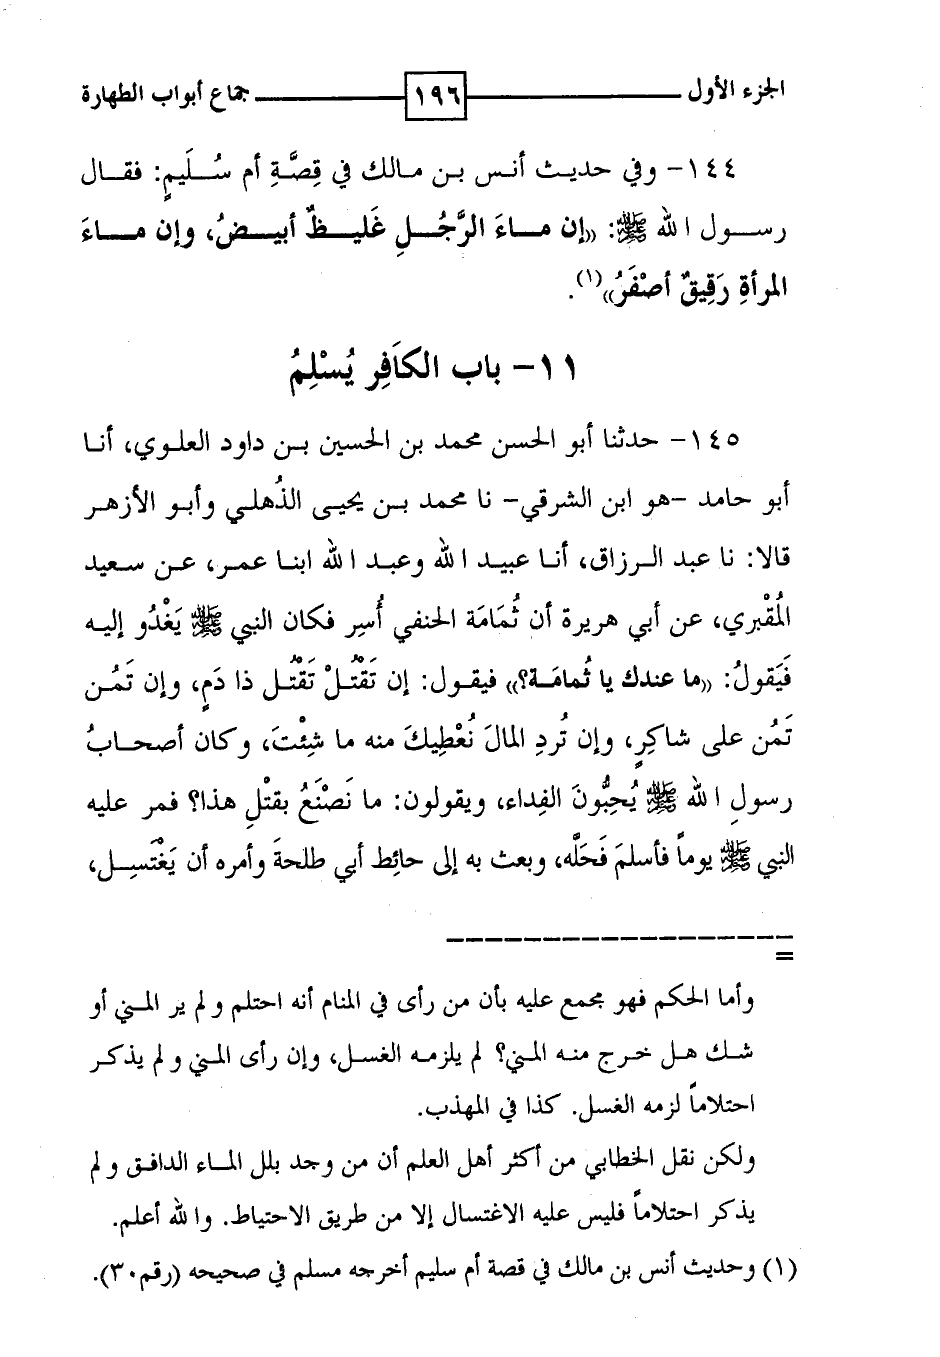 الجزء الأول ١٩٦ جماع أبواب الطهارة
١٤٤- وفي حديث أنس بن مالك في قِصَّةِ أم سُلَيمٍ: فقال
رسول الله ﷺ: «إن ماءَ الرَّجُلِ غَليظٌ أبيضُ، وإن ماءَ
المرأةِ رَقِيقٌ أصْفَرُ»(١).
١١- باب الكَافِرِ يُسْلِمُ
١٤٥- حدثنا أبو الحسن محمد بن الحسين بن داود العلوي، أنا
أبو حامد -هو ابن الشرقي- نا محمد بن يحيى الذُهلي وأبو الأزهر
قالا: نا عبد الرزاق، أنا عبيد الله وعبد الله ابنا عمر، عن سعيد
المُقْبري، عن أبي هريرة أن ثُمَامَة الحنفي أُسِر فكان النبي ﷺ يَغْدُو إليه
فَيَقولُ: «ما عندك يا ثُمامَة؟» فيقول: إن تَقْتُلْ تَقْتُل ذا دَمٍ، وإن تَمُن
تَمُن على شاكِرٍ، وإن تُردِ المالَ نُعْطِيكَ منه ما شِئْتَ، وكان أصحابُ
رسولِ الله ﷺ يُحِبُّونَ الفِداء، ويقولون: ما نَصْنَعُ بقتْلِ هذا؟ فمر عليه
النبي ﷺ يوماً فأسلمَ فَحَلَّه، وبعث به إلى حائِط أبي طلحةَ وأمره أن يَغْتَسِل،
=
وأما الحكم فهو مجمع عليه بأن من رأى في المنام أنه احتلم ولم ير المني أو
شك هل خرج منه المني؟ لم يلزمه الغسل، وإن رأى المني ولم يذكر
احتلاماً لزمه الغسل. كذا في المهذب.
ولكن نقل الخطابي من أكثر أهل العلم أن من وجد بلل الماء الدافق ولم
يذكر احتلاماً فليس عليه الاغتسال إلا من طريق الاحتياط. والله أعلم.
(١) وحديث أنس بن مالك في قصة أم سليم أخرجه مسلم في صحيحه (رقم٣٠).